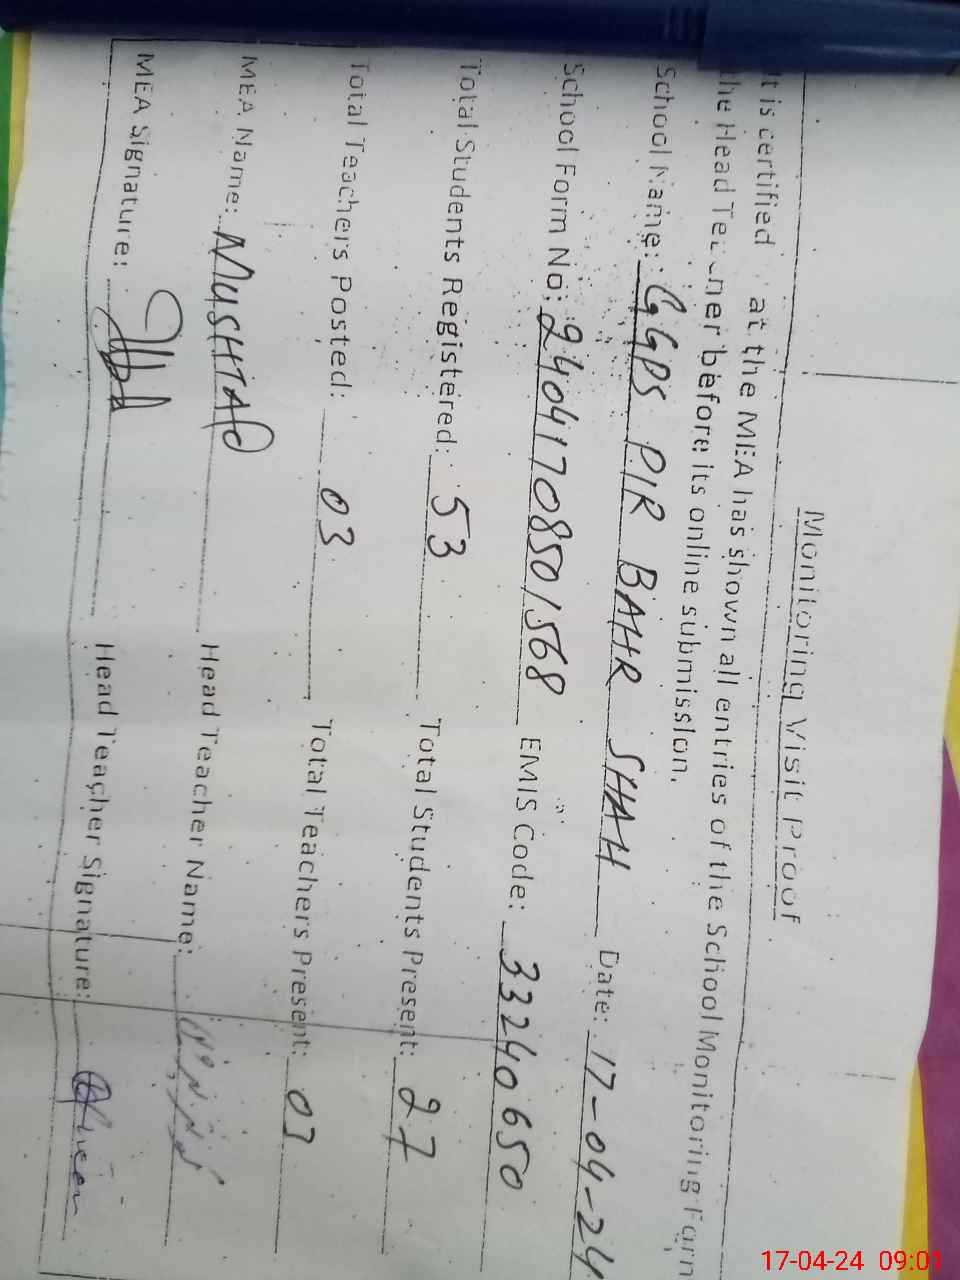 Monitoring Visit Proof
It is certified at the MEA has shown all entries of the School Monitoring Form
the Head Teacher before its online submission.
School Name: GGPS PIR BAHR SHAH Date: 17-04-24
School Form No: 24041708501568 EMIS Code: 33240650
Total Students Registered: 53 Total Students Present: 27
Total Teachers Posted: 03 Total Teachers Present: 03
MEA Name: MUSHTAQ Head Teacher Name:
MEA Signature: Head Teacher Signature:
17-04-24 09:01